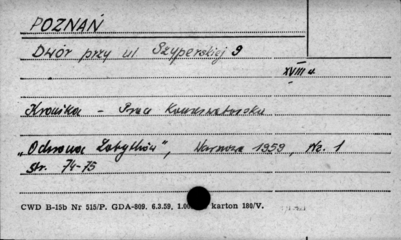 POZNAŃ
Dwór przy ul Szyperskiej 9
XVIII w.
Kronika - Praca Konserwatorska
"Ochrona Zabytków", Warszawa 1959, Nr. 1
str. 74-75
CWD B-15b Nr 515/P. GDA-809. 6.3.59. 1.00 karton 180/V.